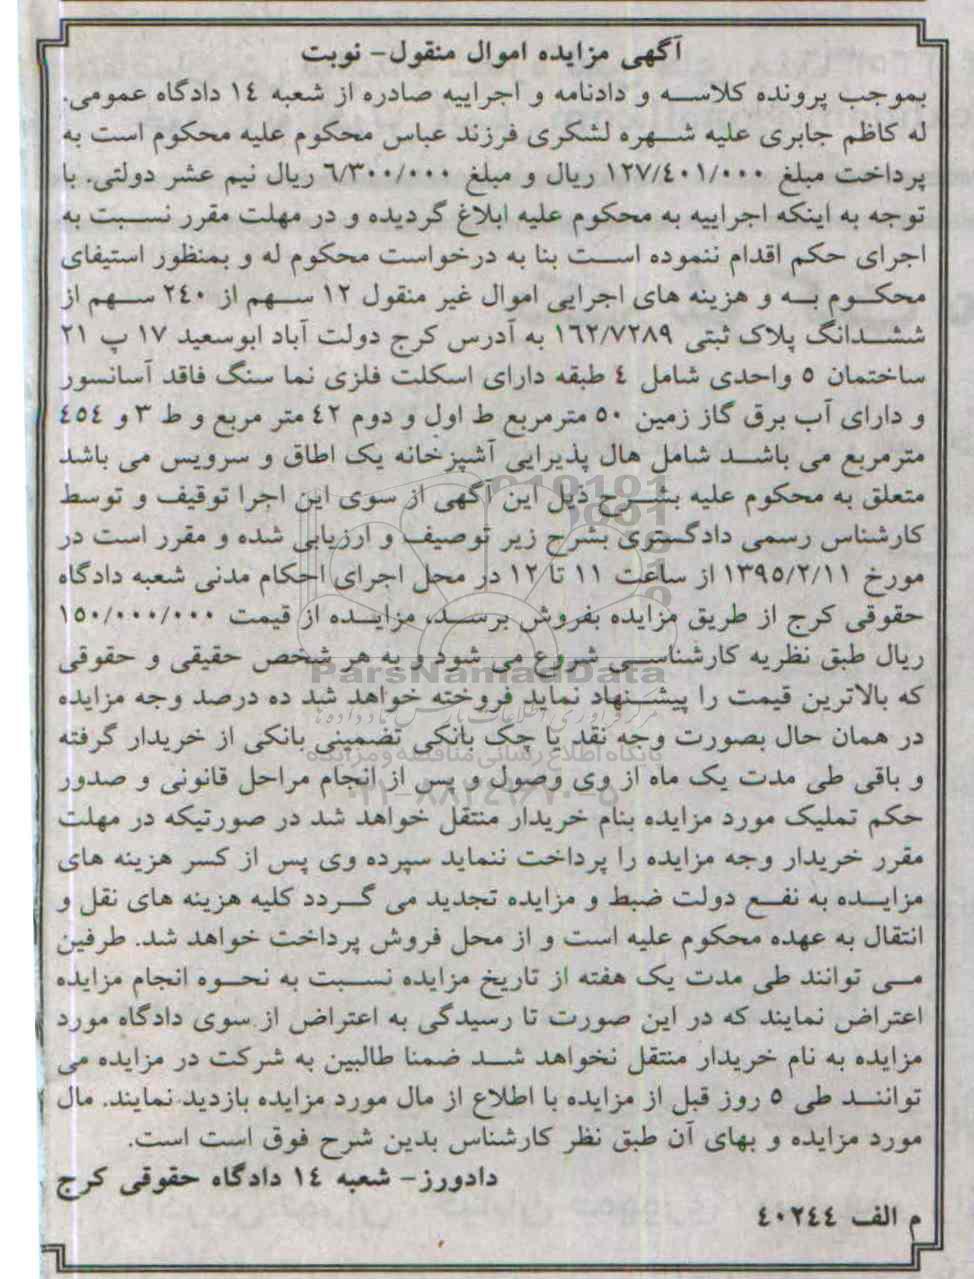 آگهی مزایده اموال منقول- نوبت
بموجب پرونده کلاسه و دادنامه و اجراییه صادره از شعبه ۱۴ دادگاه عمومی.
له کاظم جابری علیه شهره لشکری فرزند عباس محکوم علیه محکوم است به
پرداخت مبلغ ۱۲۷/۴۰۱/۰۰۰ ریال و مبلغ ۶/۳۰۰/۰۰۰ ریال نیم عشر دولتی. با
توجه به اینکه اجراییه به محکوم علیه ابلاغ گردیده و در مهلت مقرر نسبت به
اجرای حکم اقدام ننموده است بنا به درخواست محکوم له و بمنظور استیفای
محکوم به و هزینه های اجرایی اموال غیر منقول ۱۲ سهم از ۲۴۰ سهم از
ششدانگ پلاک ثبتی ۱۶۲/۷۲۸۹ به آدرس کرج دولت آباد ابوسعید ۱۷ پ ۲۱
ساختمان ۵ واحدی شامل ۴ طبقه دارای اسکلت فلزی نما سنگ فاقد آسانسور
و دارای آب برق گاز زمین ۵۰ مترمربع ط اول و دوم ۴۲ متر مربع و ط ۳ و ۴۵۴
مترمربع می باشد شامل هال پذیرایی آشپزخانه یک اطاق و سرویس می باشد
متعلق به محکوم علیه بشرح ذیل این آگهی از سوی این اجرا توقیف و توسط
کارشناس رسمی دادگستری بشرح زیر توصیف و ارزیابی شده و مقرر است در
مورخ ۱۳۹۵/۲/۱۱ از ساعت ۱۱ تا ۱۲ در محل اجرای احکام مدنی شعبه دادگاه
حقوقی کرج از طریق مزایده بفروش برسد، مزایده از قیمت ۱۵۰/۰۰۰/۰۰۰
ریال طبق نظریه کارشناسی شروع می شود و به هر شخص حقیقی و حقوقی
که بالاترین قیمت را پیشنهاد نماید فروخته خواهد شد ده درصد وجه مزایده
در همان حال بصورت وجه نقد یا چک بانکی تضمینی بانکی از خریدار گرفته
و باقی طی مدت یک ماه از وی وصول و پس از انجام مراحل قانونی و صدور
حکم تملیک مورد مزایده بنام خریدار منتقل خواهد شد در صورتیکه در مهلت
مقرر خریدار وجه مزایده را پرداخت ننماید سپرده وی پس از کسر هزینه های
مزایده به نفع دولت ضبط و مزایده تجدید می گردد کلیه هزینه های نقل و
انتقال به عهده محکوم علیه است و از محل فروش پرداخت خواهد شد. طرفین
می توانند طی مدت یک هفته از تاریخ مزایده نسبت به نحوه انجام مزایده
اعتراض نمایند که در این صورت تا رسیدگی به اعتراض از سوی دادگاه مورد
مزایده به نام خریدار منتقل نخواهد شد ضمنا طالبین به شرکت در مزایده می
توانند طی ۵ روز قبل از مزایده با اطلاع از مال مورد مزایده بازدید نمایند. مال
مورد مزایده و بهای آن طبق نظر کارشناس بدین شرح فوق است است.
دادورز- شعبه ۱۴ دادگاه حقوقی کرج
م الف ۴۰۲۴۴
ParsNamadData
پایگاه اطلاع رسانی مناقصه و مزایده